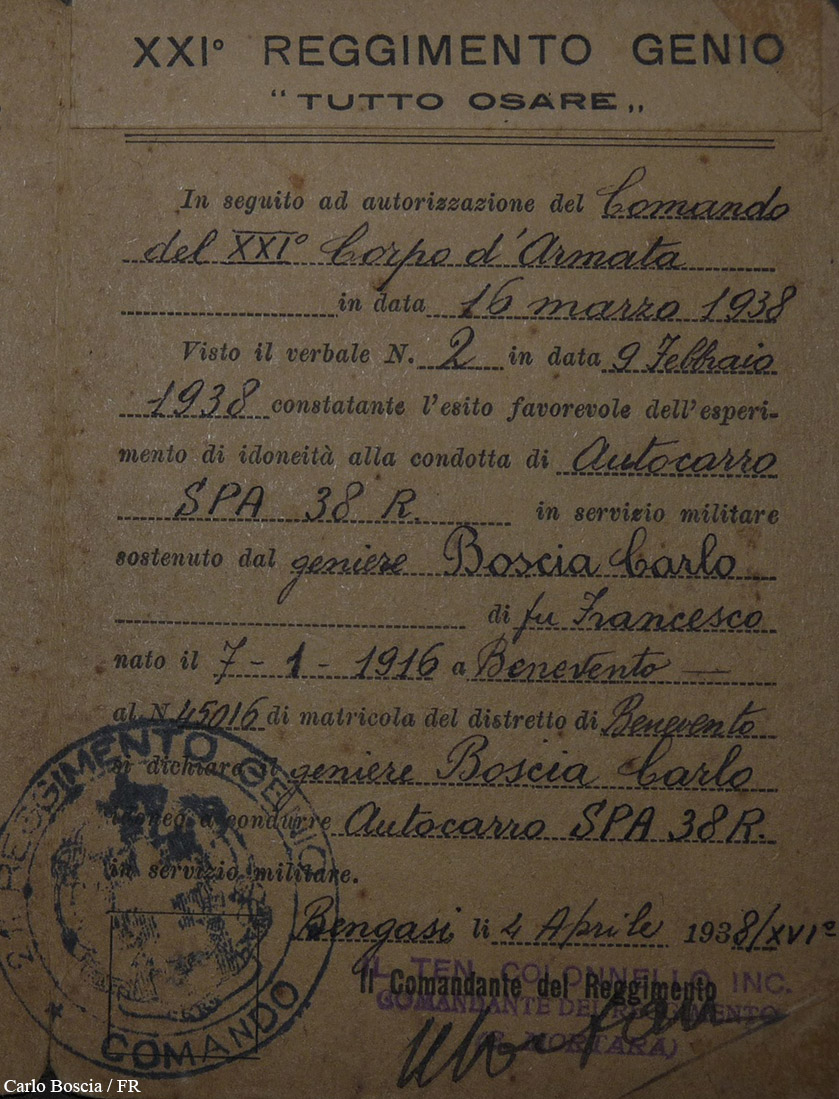 XXI° REGGIMENTO GENIO
“ TUTTO OSARE „
In seguito ad autorizzazione del Comando
del XXI° Corpo d'Armata
in data 16 marzo 1938
Visto il verbale N. 2 in data 9 Febbraio
1938 constatante l'esito favorevole dell'esperi-
mento di idoneità alla condotta di Autocarro
SPA 38 R. in servizio militare
sostenuto dal geniere Boscia Carlo
di fu Francesco
nato il 7-1-1916 a Benevento —
al N 45016 di matricola del distretto di Benevento
si dichiara il geniere Boscia Carlo
idoneo a condurre Autocarro SPA 38 R.
in servizio militare.
Bengasi li 4 Aprile 1938/XVI°
IL TEN. COLONNELLO INC.
Il Comandante del Reggimento
COMANDANTE DEL REGGIMENTO
MORTARA)
REGGIMENTO GENIO
COMANDO
Carlo Boscia / FR